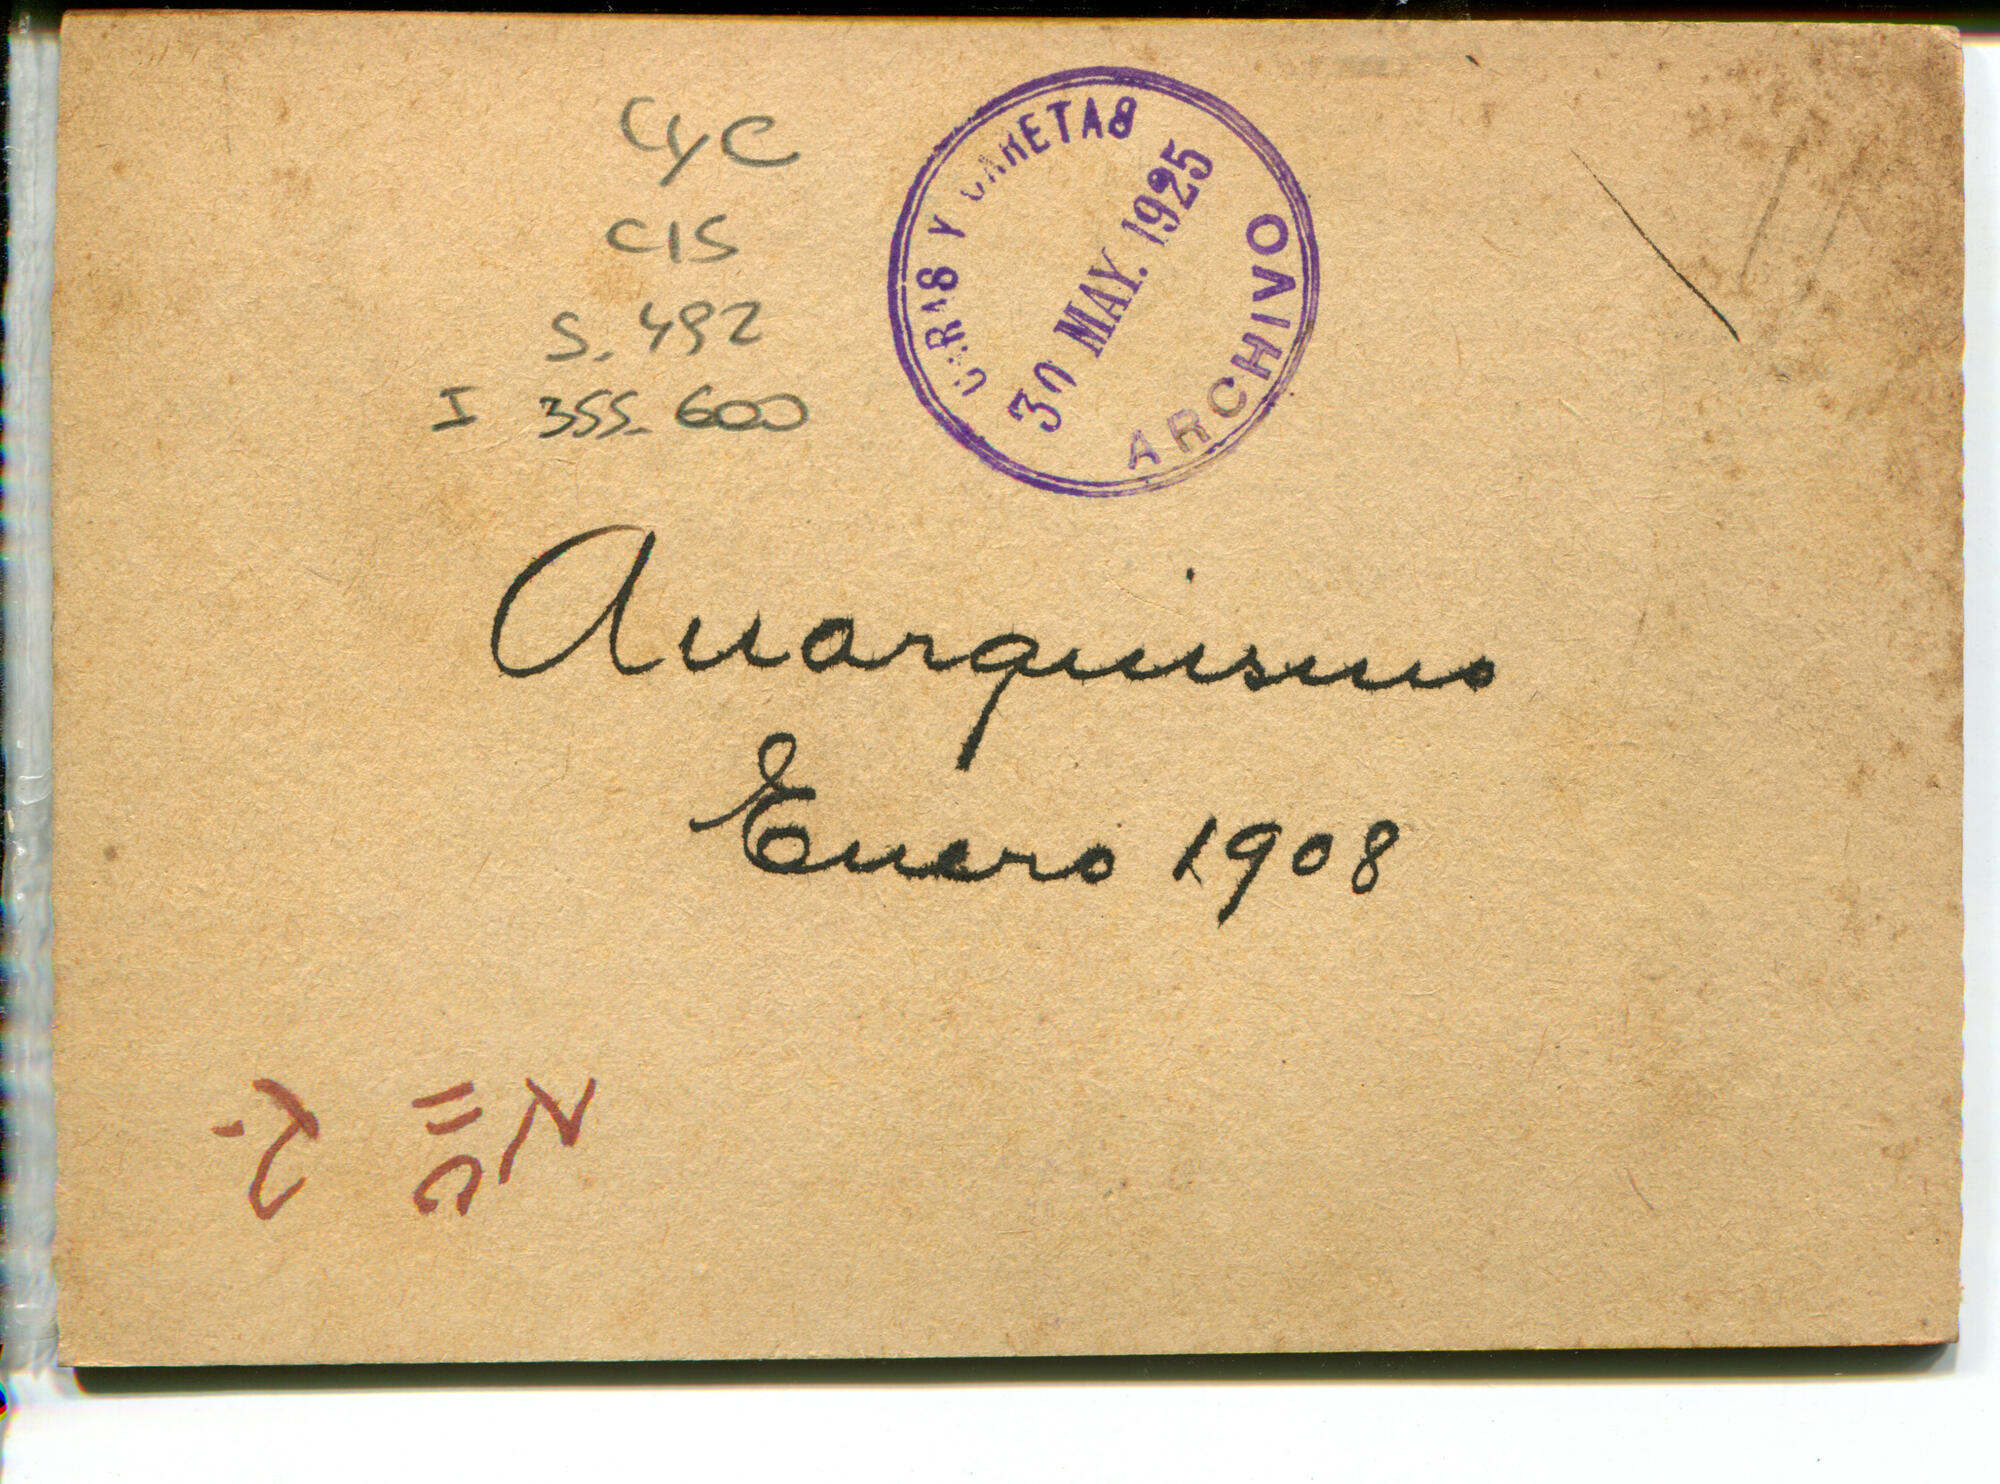 CyC
C15
S. 492
I 355.600
CARAS Y CARETAS
30 MAY. 1925
ARCHIVO
Anarquismo
Enero 1908